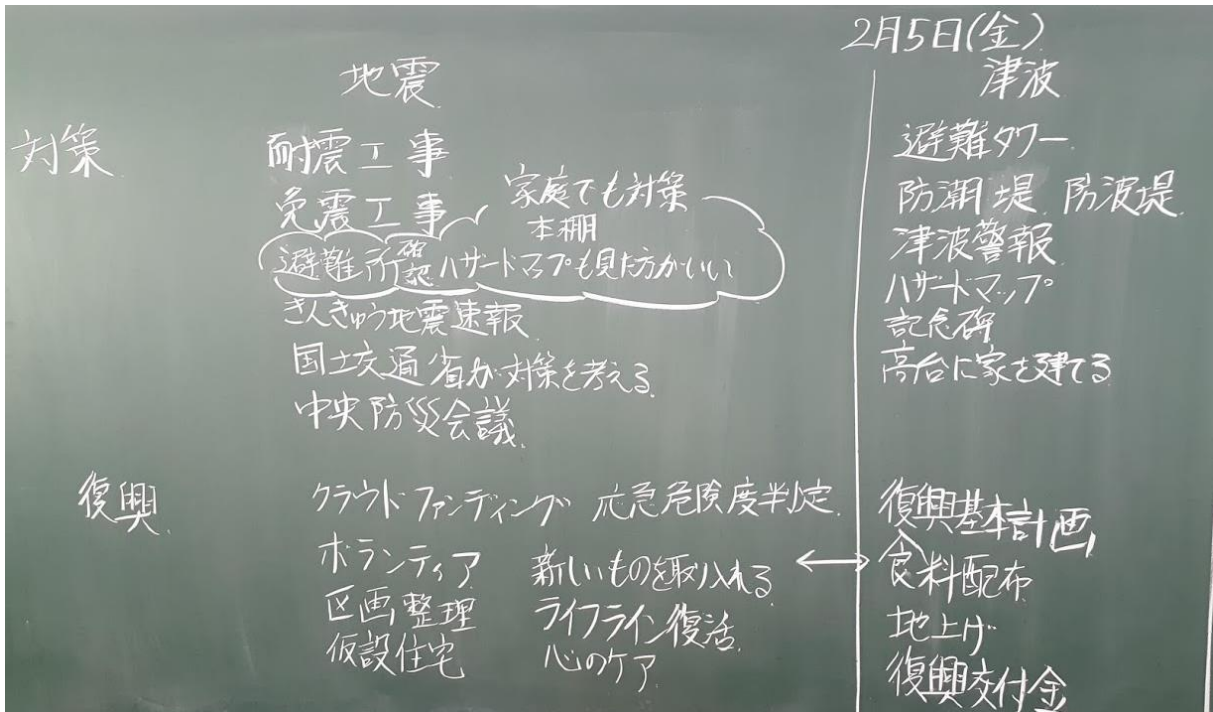 2月5日(金)
地震
津波
対策
耐震工事
免震工事
家庭でも対策
本棚
避難所確認 ハザードマップも見た方がいい
きんきゅう地震速報
国土交通省が対策を考える
中央防災会議
避難タワー
防潮堤 防波堤
津波警報
ハザードマップ
記念碑
高台に家を建てる
復興
クラウドファンディング 応急危険度判定
ボランティア 新しいものを取り入れる
区画整理 ライフライン復活
仮設住宅 心のケア
復興基本計画
食料配布
地上げ
復興交付金